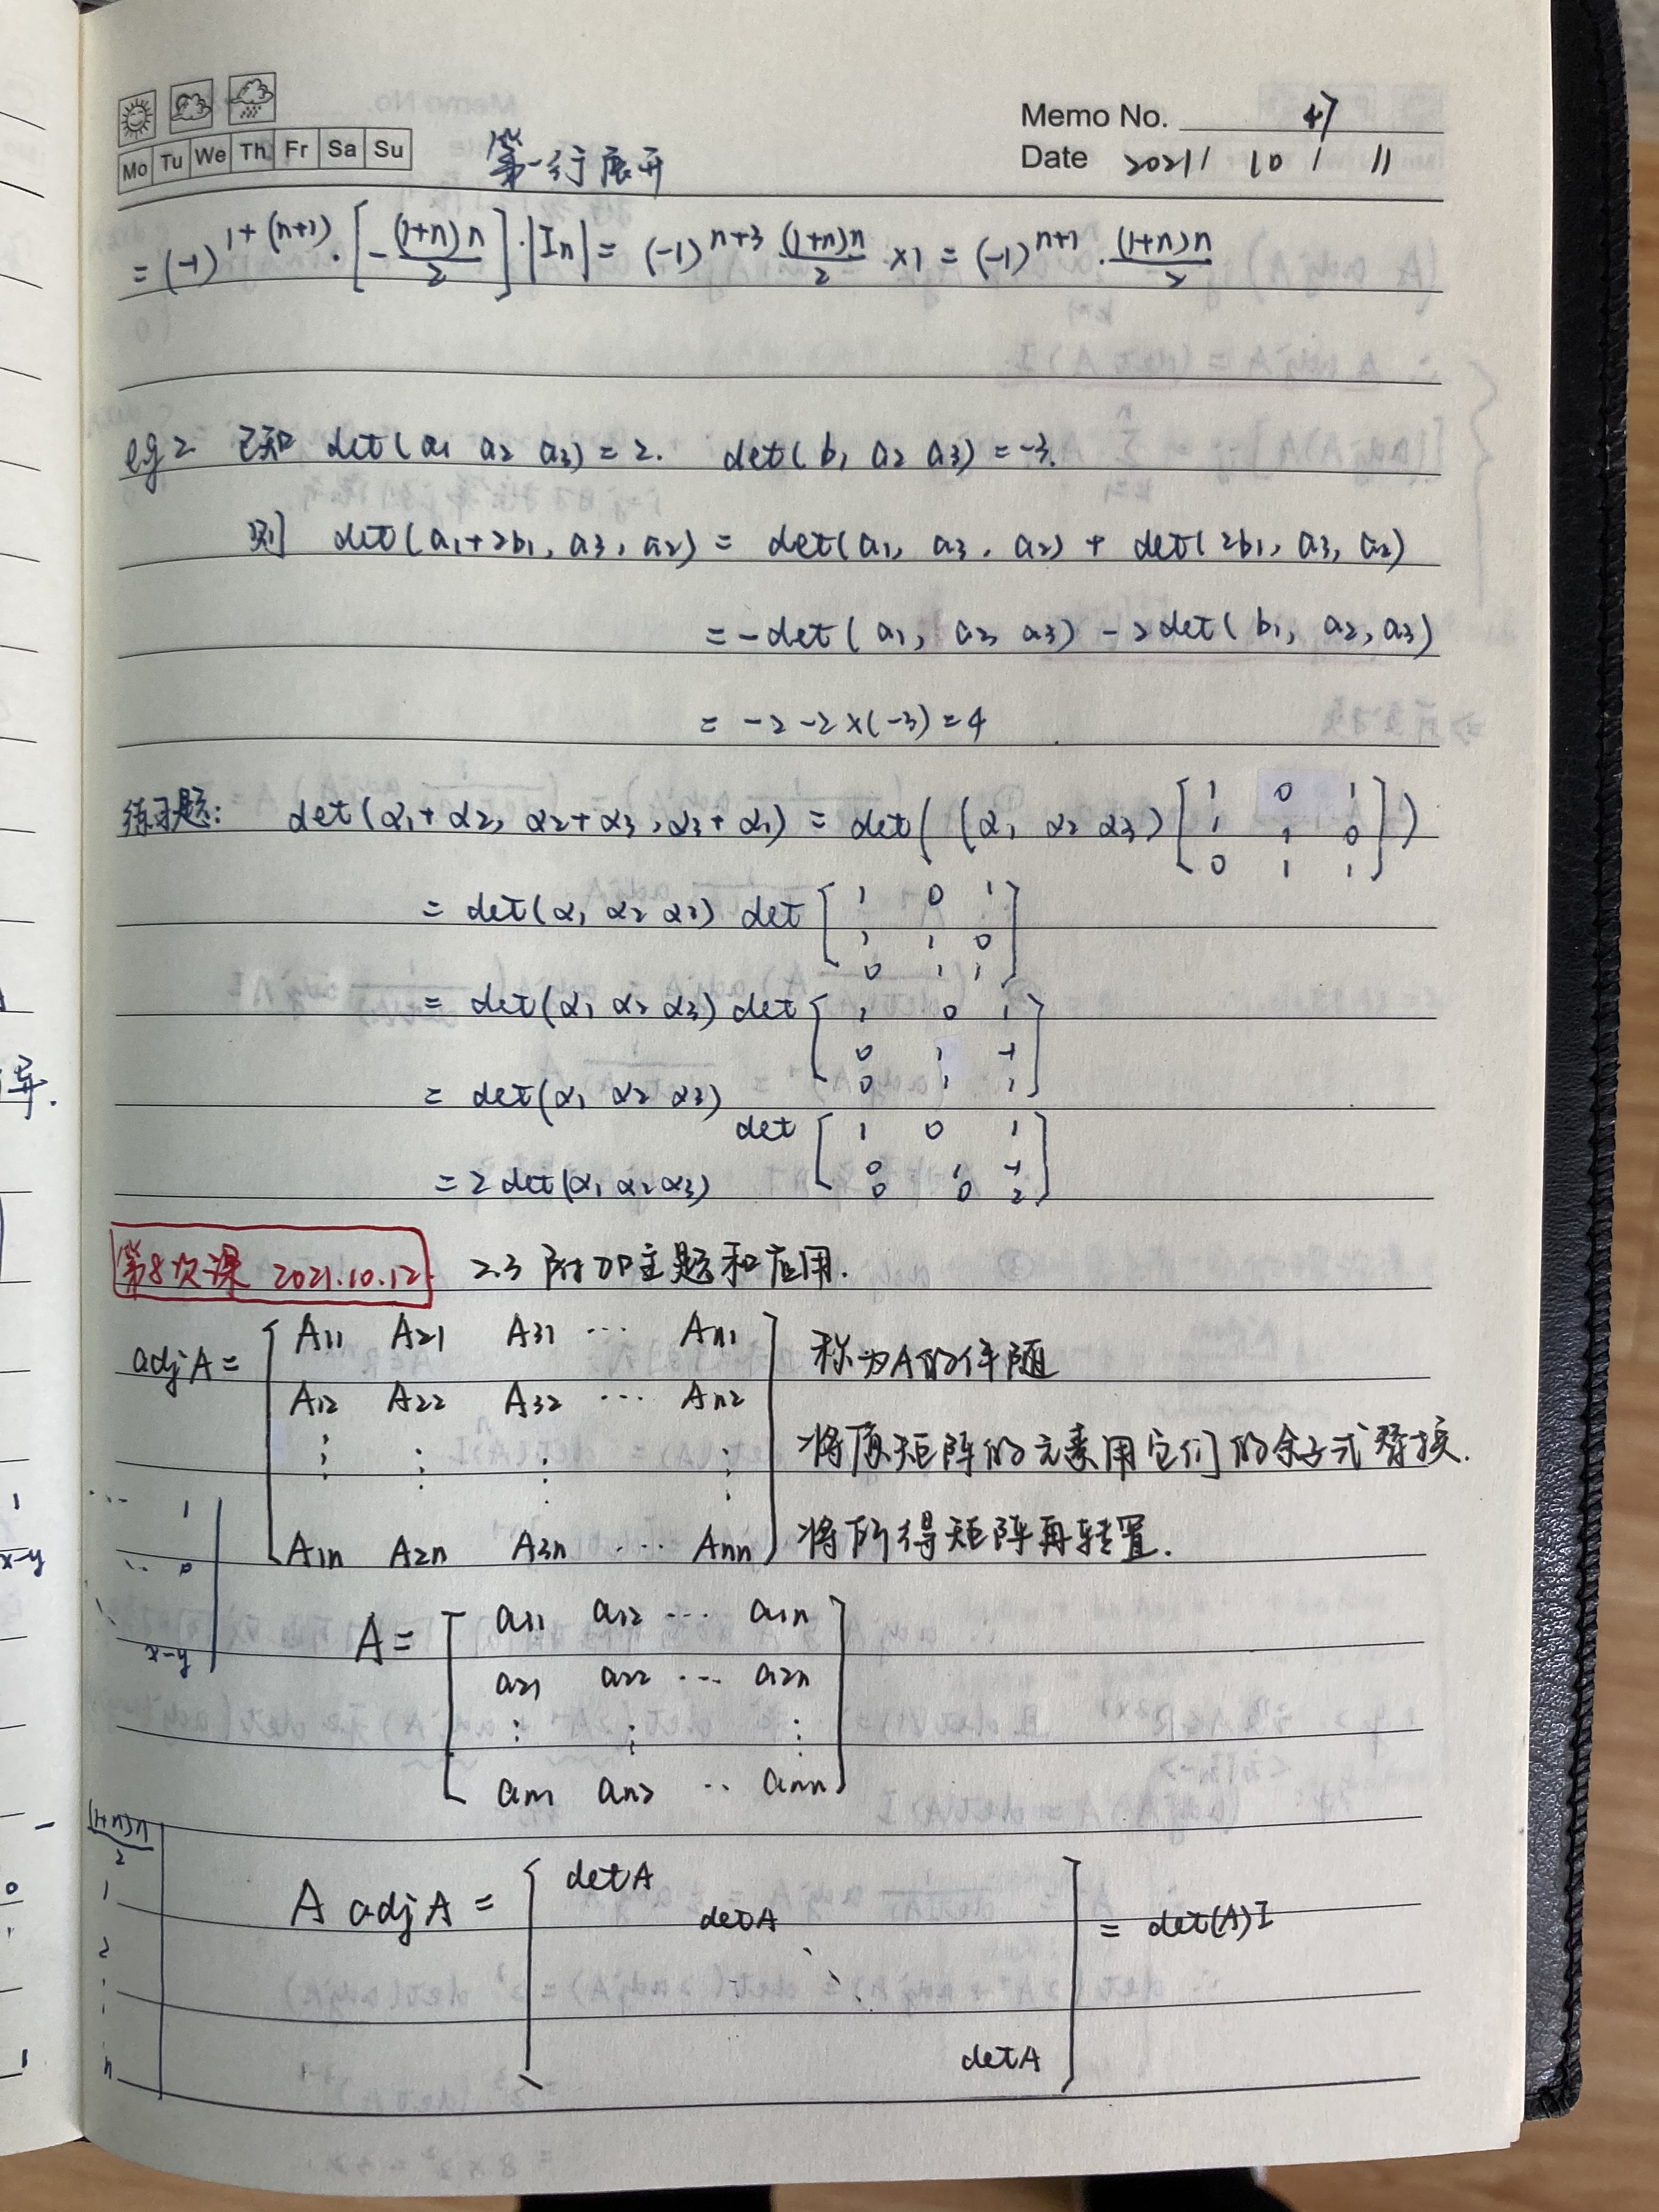 Memo No. 47
Mo Tu We Th Fr Sa Su
Date 2021 / 10 / 11
第一行展开
= (-1)^{1+(n+1)} · [-\frac{(1+n)n}{2}] · |In| = (-1)^{n+3} \frac{(1+n)n}{2} ×1 = (-1)^{n+1} · \frac{(1+n)n}{2}
eg 2 已知 det(a1 a2 a3) = 2. det(b1 a2 a3) = -3.
则 det(a1+2b1, a3, a2) = det(a1, a3, a2) + det(2b1, a3, a2)
= -det(a1, a2, a3) - 2det(b1, a2, a3)
= -2 -2×(-3) = 4
练习题: det(α1+α2, α2+α3, α3+α1) = det( (α1 α2 α3) [1 0 1
1 1 0
0 1 1] )
= det(α1 α2 α3) det [1 0 1
1 1 0
0 1 1]
= det(α1 α2 α3) det [1 0 1
0 1 -1
0 1 1]
= det(α1 α2 α3) det [1 0 1
0 1 -1
0 0 2]
= 2 det(α1 α2 α3)
第8次课 2021.10.12. 2.3 附加主题和应用.
adj A = [A11 A21 A31 ... An1
A12 A22 A32 ... An2
⋮ ⋮ ⋮ ⋮
A1n A2n A3n ... Ann]
称为A的伴随
将原矩阵的元素用它们的余子式替换.
将所得矩阵再转置.
A = [a11 a12 ... a1n
a21 a22 ... a2n
⋮ ⋮ ⋮
an1 an2 .. ann]
A adj A = [detA
detA
⋱
detA] = det(A)I
导.
... 1
x-y
.. 0
x-y
\frac{(1+n)n}{2}
1
2
⋮
n